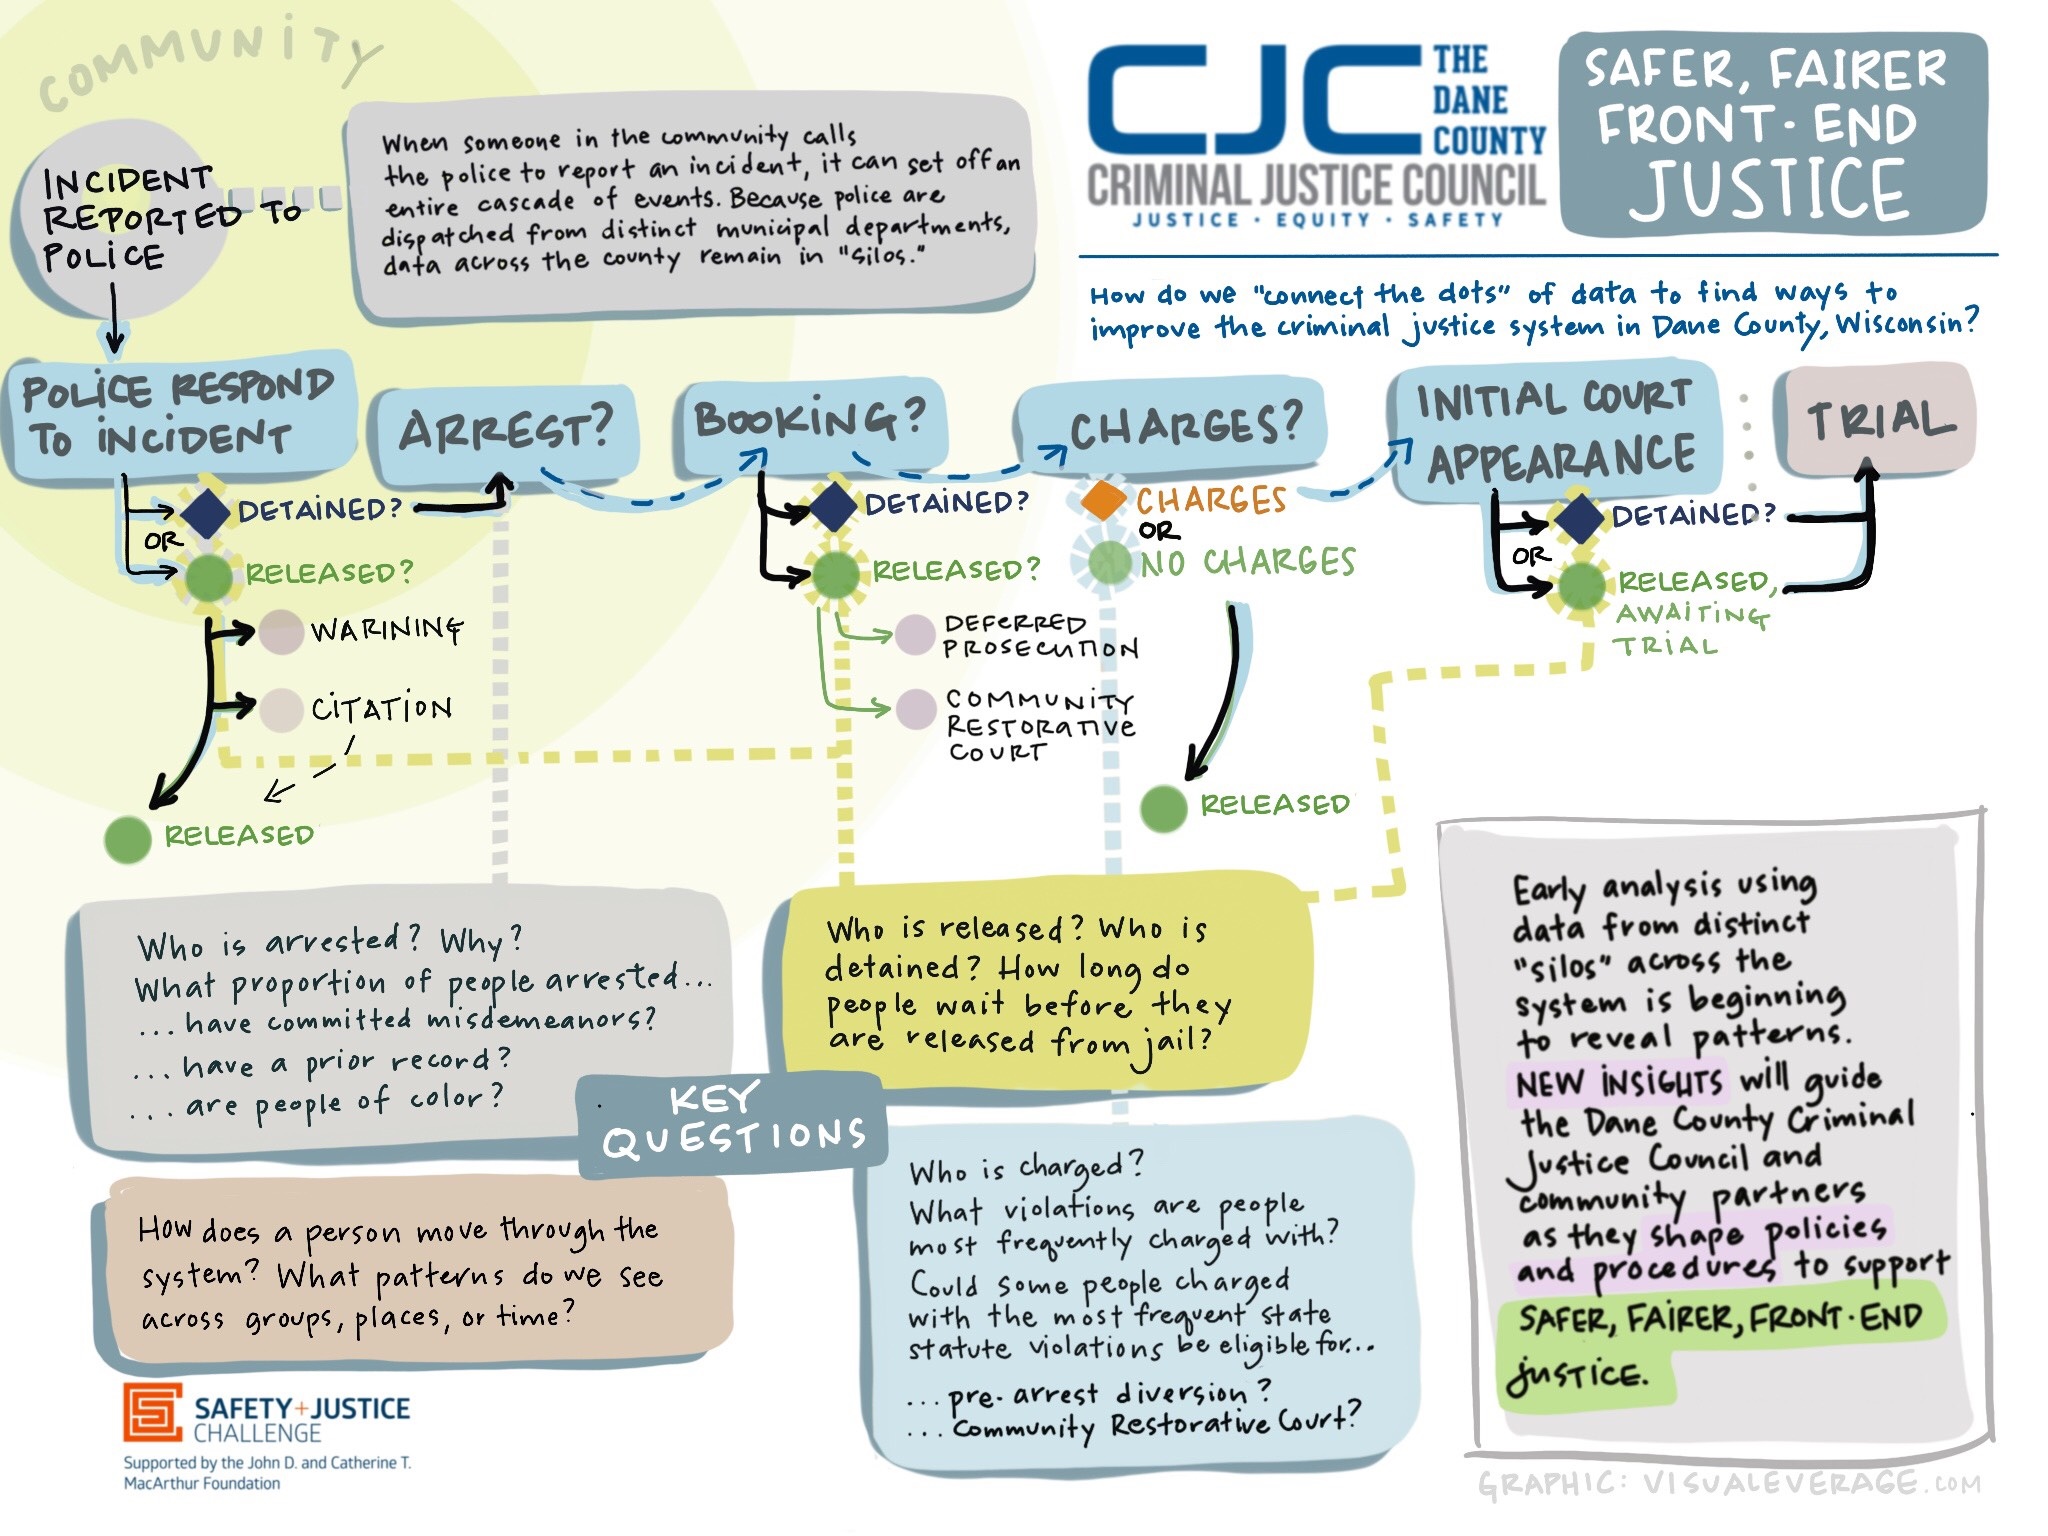 COMMUNITY
INCIDENT
REPORTED TO
POLICE
When someone in the community calls
the police to report an incident, it can set off an
entire cascade of events. Because police are
dispatched from distinct municipal departments,
data across the county remain in "silos."
CJC THE
DANE
COUNTY
CRIMINAL JUSTICE COUNCIL
JUSTICE · EQUITY · SAFETY
SAFER, FAIRER
FRONT·END
JUSTICE
How do we "connect the dots" of data to find ways to
improve the criminal justice system in Dane County, Wisconsin?
POLICE RESPOND
TO INCIDENT
ARREST?
BOOKING?
CHARGES?
INITIAL COURT
APPEARANCE
TRIAL
DETAINED?
OR
RELEASED?
WARINING
CITATION
RELEASED
DETAINED?
RELEASED?
DEFERRED
PROSECUTION
COMMUNITY
RESTORATIVE
COURT
CHARGES
OR
NO CHARGES
RELEASED
DETAINED?
OR
RELEASED,
AWAITING
TRIAL
Who is arrested? Why?
What proportion of people arrested...
...have committed misdemeanors?
...have a prior record?
...are people of color?
KEY
QUESTIONS
Who is released? Who is
detained? How long do
people wait before they
are released from jail?
How does a person move through the
system? What patterns do we see
across groups, places, or time?
Who is charged?
What violations are people
most frequently charged with?
Could some people charged
with the most frequent state
statute violations be eligible for...
...pre-arrest diversion?
...Community Restorative Court?
Early analysis using
data from distinct
"silos" across the
system is beginning
to reveal patterns.
NEW INSIGHTS will guide
the Dane County Criminal
Justice Council and
community partners
as they shape policies
and procedures to support
SAFER, FAIRER, FRONT·END
JUSTICE.
SAFETY+JUSTICE
CHALLENGE
Supported by the John D. and Catherine T.
MacArthur Foundation
GRAPHIC: VISUALEVERAGE.COM